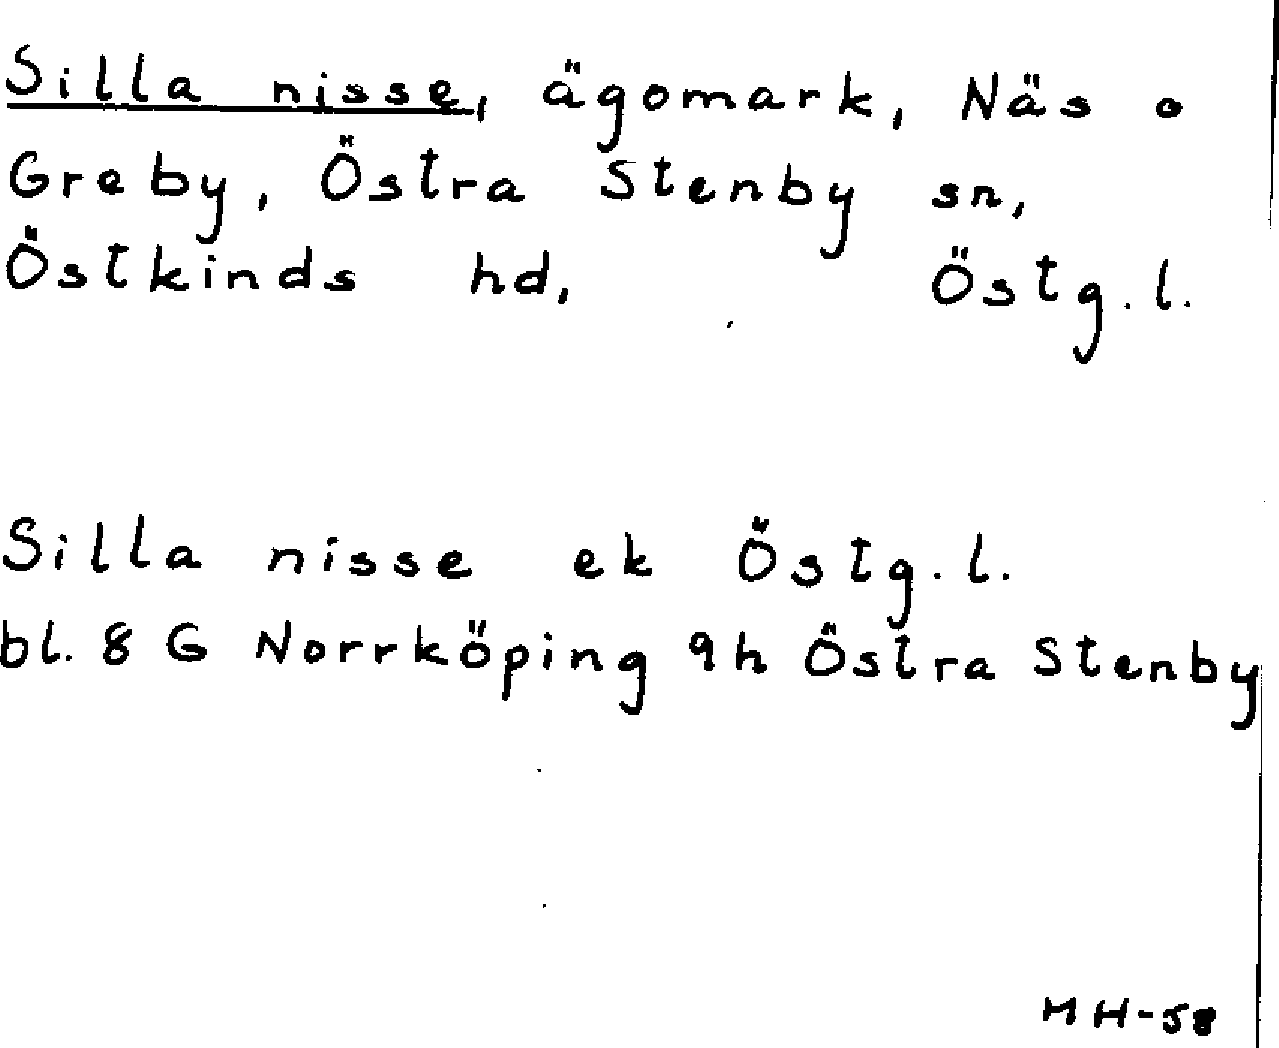 Silla nisse, ägomark, Näs o
Greby, Östra Stenby sn,
Östkinds hd, Östg.l.
Silla nisse ek Östg.l.
bl. 8 G Norrköping 9h Östra Stenby
MH-58